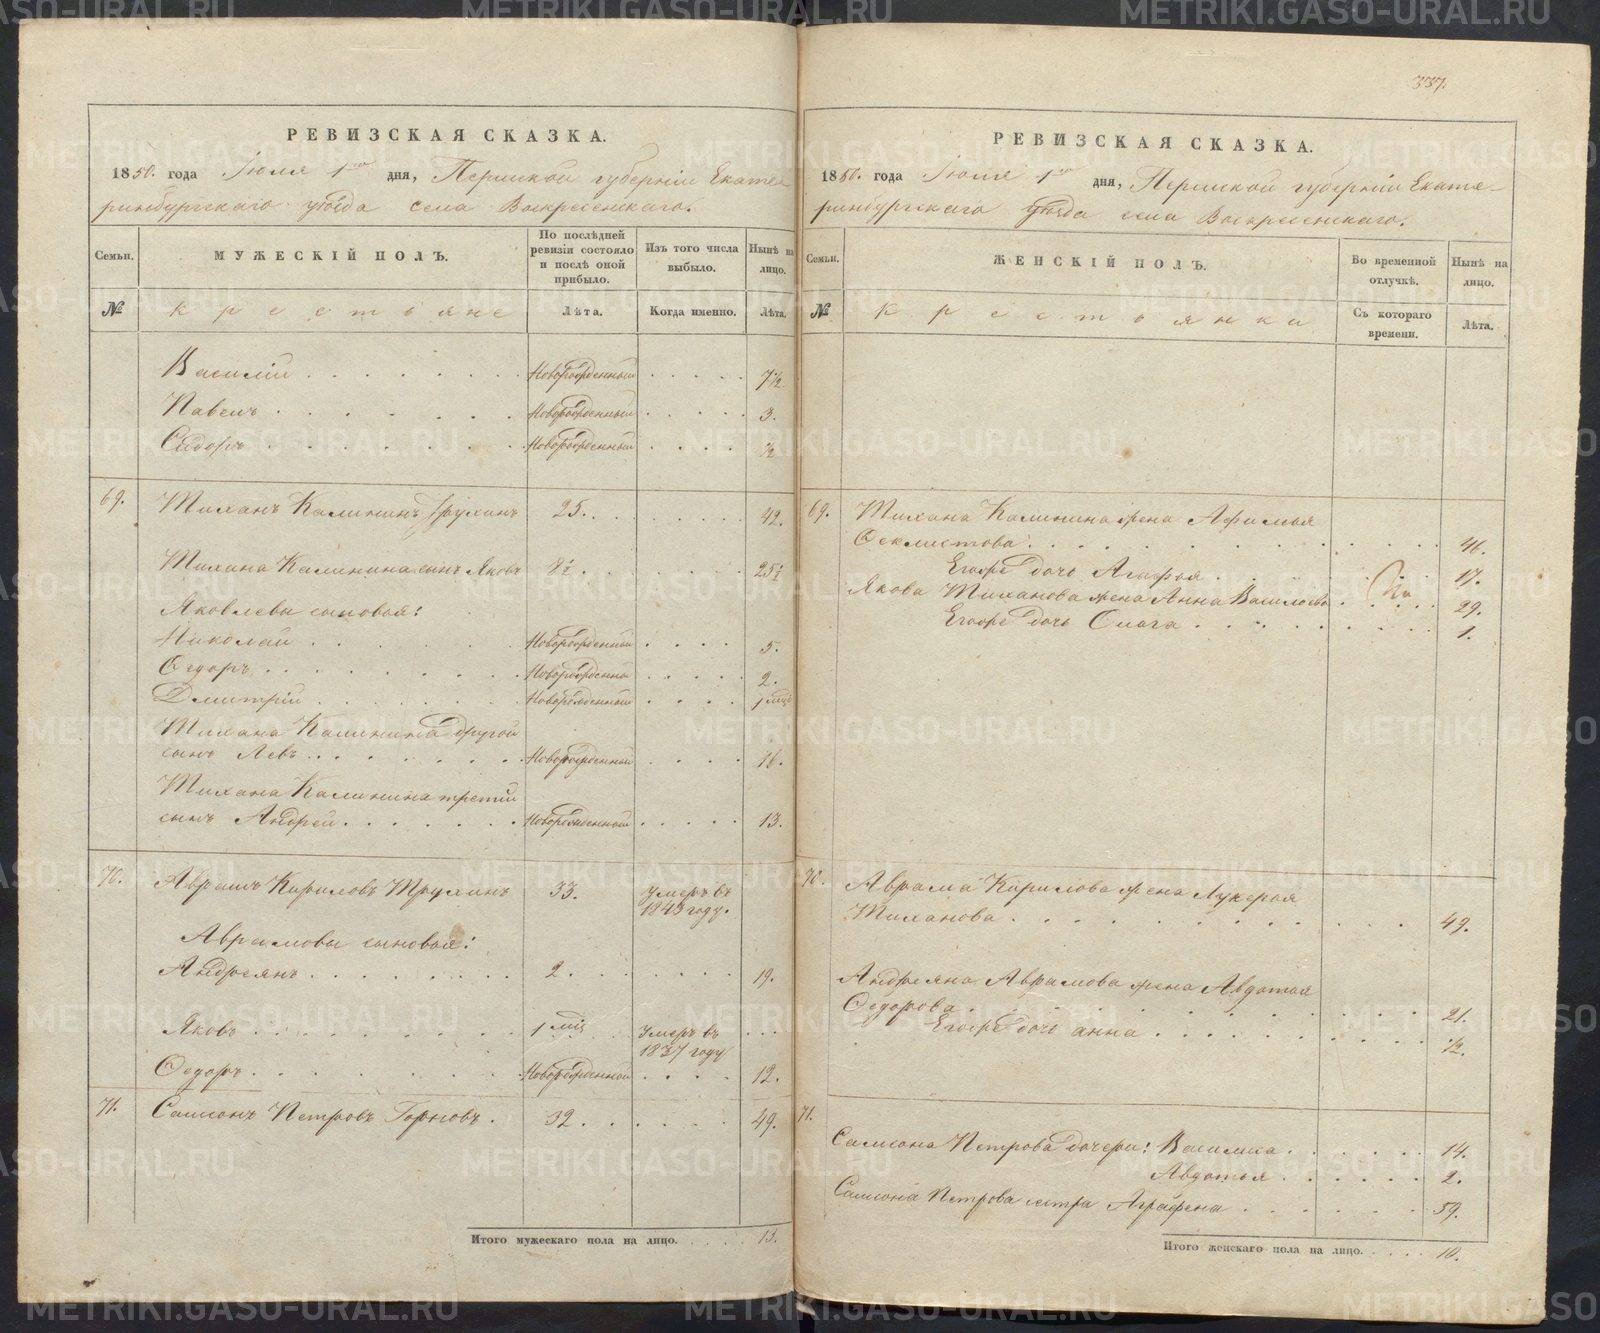 337.
РЕВИЗСКАЯ СКАЗКА.
1850. года Іюля 1го дня, Пермской губерніи Екате-
ринбургскаго уѣзда села Воскресенскаго.
Семьи.
МУЖЕСКІЙ ПОЛЪ.
По послѣдней ревизіи состояло и послѣ оной прибыло.
Изъ того числа выбыло.
Нынѣ на лицо.
№
Крестьяне
Лѣта.
Когда именно.
Лѣта.
Василій Новорожденный 7½
Павелъ Новорожденный 3.
Сидоръ Новорожденный ½
69. Тиханъ Калининъ Трухинъ 25. 42.
Тихана Калинина сынъ Яковъ 8½ 25½
Яковлевы сыновья:
Николай Новорожденный 5.
Ѳедоръ Новорожденный 2.
Дмитрій Новорожденный 1 міц
Тихана Калинина другой
сынъ Левъ Новорожденный 16.
Тихана Калинина третій
сынъ Андрей Новорожденный 13.
70. Аврамъ Кириловъ Трухинъ 33. Умеръ въ
1843 году.
Аврамовы сыновья:
Андреянъ 2 19.
Яковъ 1 міц Умеръ въ
1837 году
Ѳедоръ Новорожденной 12.
71. Самсонъ Петровъ Горновъ. 32 49.
Итого мужескаго пола на лицо. 13.
РЕВИЗСКАЯ СКАЗКА.
1850. года Іюля 1го дня, Пермской губерніи Екате-
ринбургскаго уѣзда села Воскресенскаго.
Семьи.
ЖЕНСКІЙ ПОЛЪ.
Во временной отлучкѣ.
Нынѣ на лицо.
№
Крестьянки
Съ котораго времени.
Лѣта.
69. Тихана Калинина жена Афимья
Ѳеклистова 46.
Егоже дочь Агафья 17.
Якова Тиханова жена Анна Васильева 29.
Егоже дочь Ольга 1.
70. Аврама Кирилова жена Лукерья
Тиханова 49.
Андреяна Аврамова жена Авдотья
Ѳедорова 21.
Егоже дочь анна ½.
71.
Самсона Петрова дочери: Василиса 14.
Авдотья 2.
Самсона Петрова сестра Аграфена 59.
Итого женскаго пола на лицо. 10.
METRIKI.GASO-URAL.RU